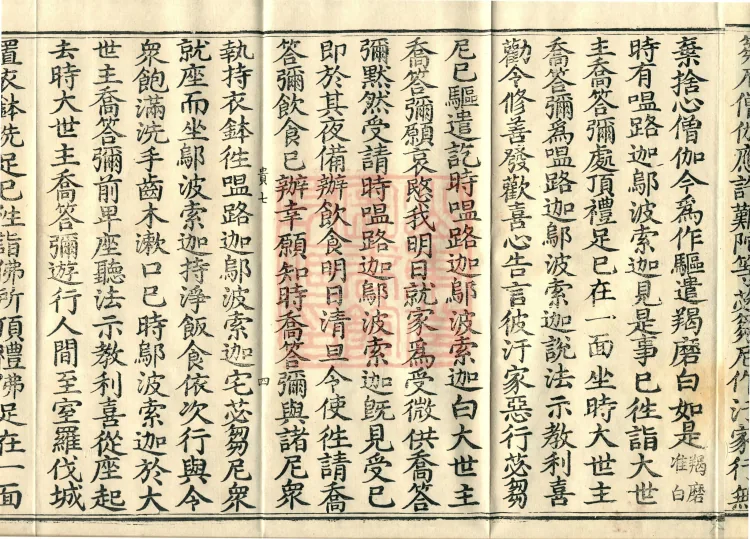 芻尼僧伽應詰難陀等苾芻尼作汙家行無
棄捨心僧伽今爲作驅遣羯磨白如是羯磨准白
時有嗢路迦鄔波索迦見是事已往詣大世
主喬答彌處頂禮足已在一面坐時大世主
喬答彌爲嗢路迦鄔波索迦說法示教利喜
勸令修善發歡喜心告言彼汙家惡行苾芻
尼已驅遣訖時嗢路迦鄔波索迦白大世主
喬答彌願哀愍我明日就家爲受微供喬答
彌默然受請時嗢路迦鄔波索迦旣見受已
即於其夜備辦飲食明日清旦令使往請喬
答彌飲食已辦幸願知時喬答彌與諸尼衆
貴七 四
執持衣鉢往嗢路迦鄔波索迦宅苾芻尼衆
就座而坐鄔波索迦持淨飯食依次行與令
衆飽滿洗手齒木漱口已時鄔波索迦於大
世主喬答彌前卑座聽法示教利喜從座起
去時大世主喬答彌遊行人間至室羅伐城
置衣鉢洗足已往詣佛所頂禮佛足在一面